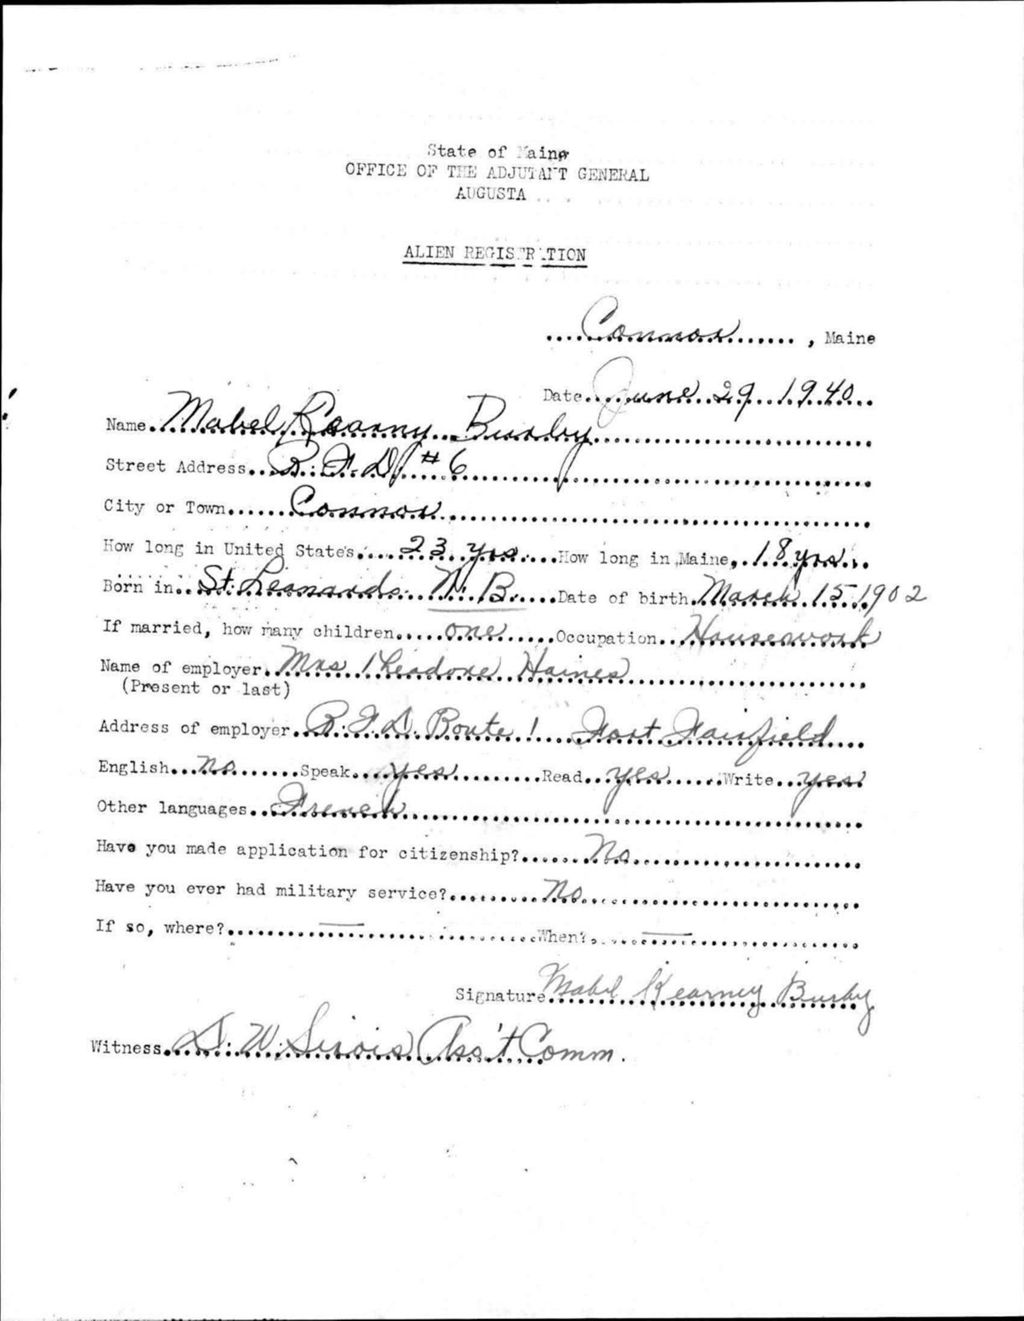 State of Maine
OFFICE OF THE ADJUTANT GENERAL
AUGUSTA
ALIEN REGISTRATION
Connor, Maine
Date June 29 1940
Name Mabel Kearny Busby
Street Address R.F.D. #6
City or Town Connor
How long in United States 23 yrs How long in Maine 18 yrs
Born in St. Leonards N.B. Date of birth March 15 1902
If married, how many children one Occupation Housework
Name of employer Mrs Theodore Haines
(Present or last)
Address of employer R.F.D. Route 1 Fort Fairfield
English no Speak yes Read yes Write yes
Other languages French
Have you made application for citizenship? No
Have you ever had military service? No
If so, where? — When? —
Signature Mabel Kearney Busby
Witness D. W. Sirois Ass't Comm.